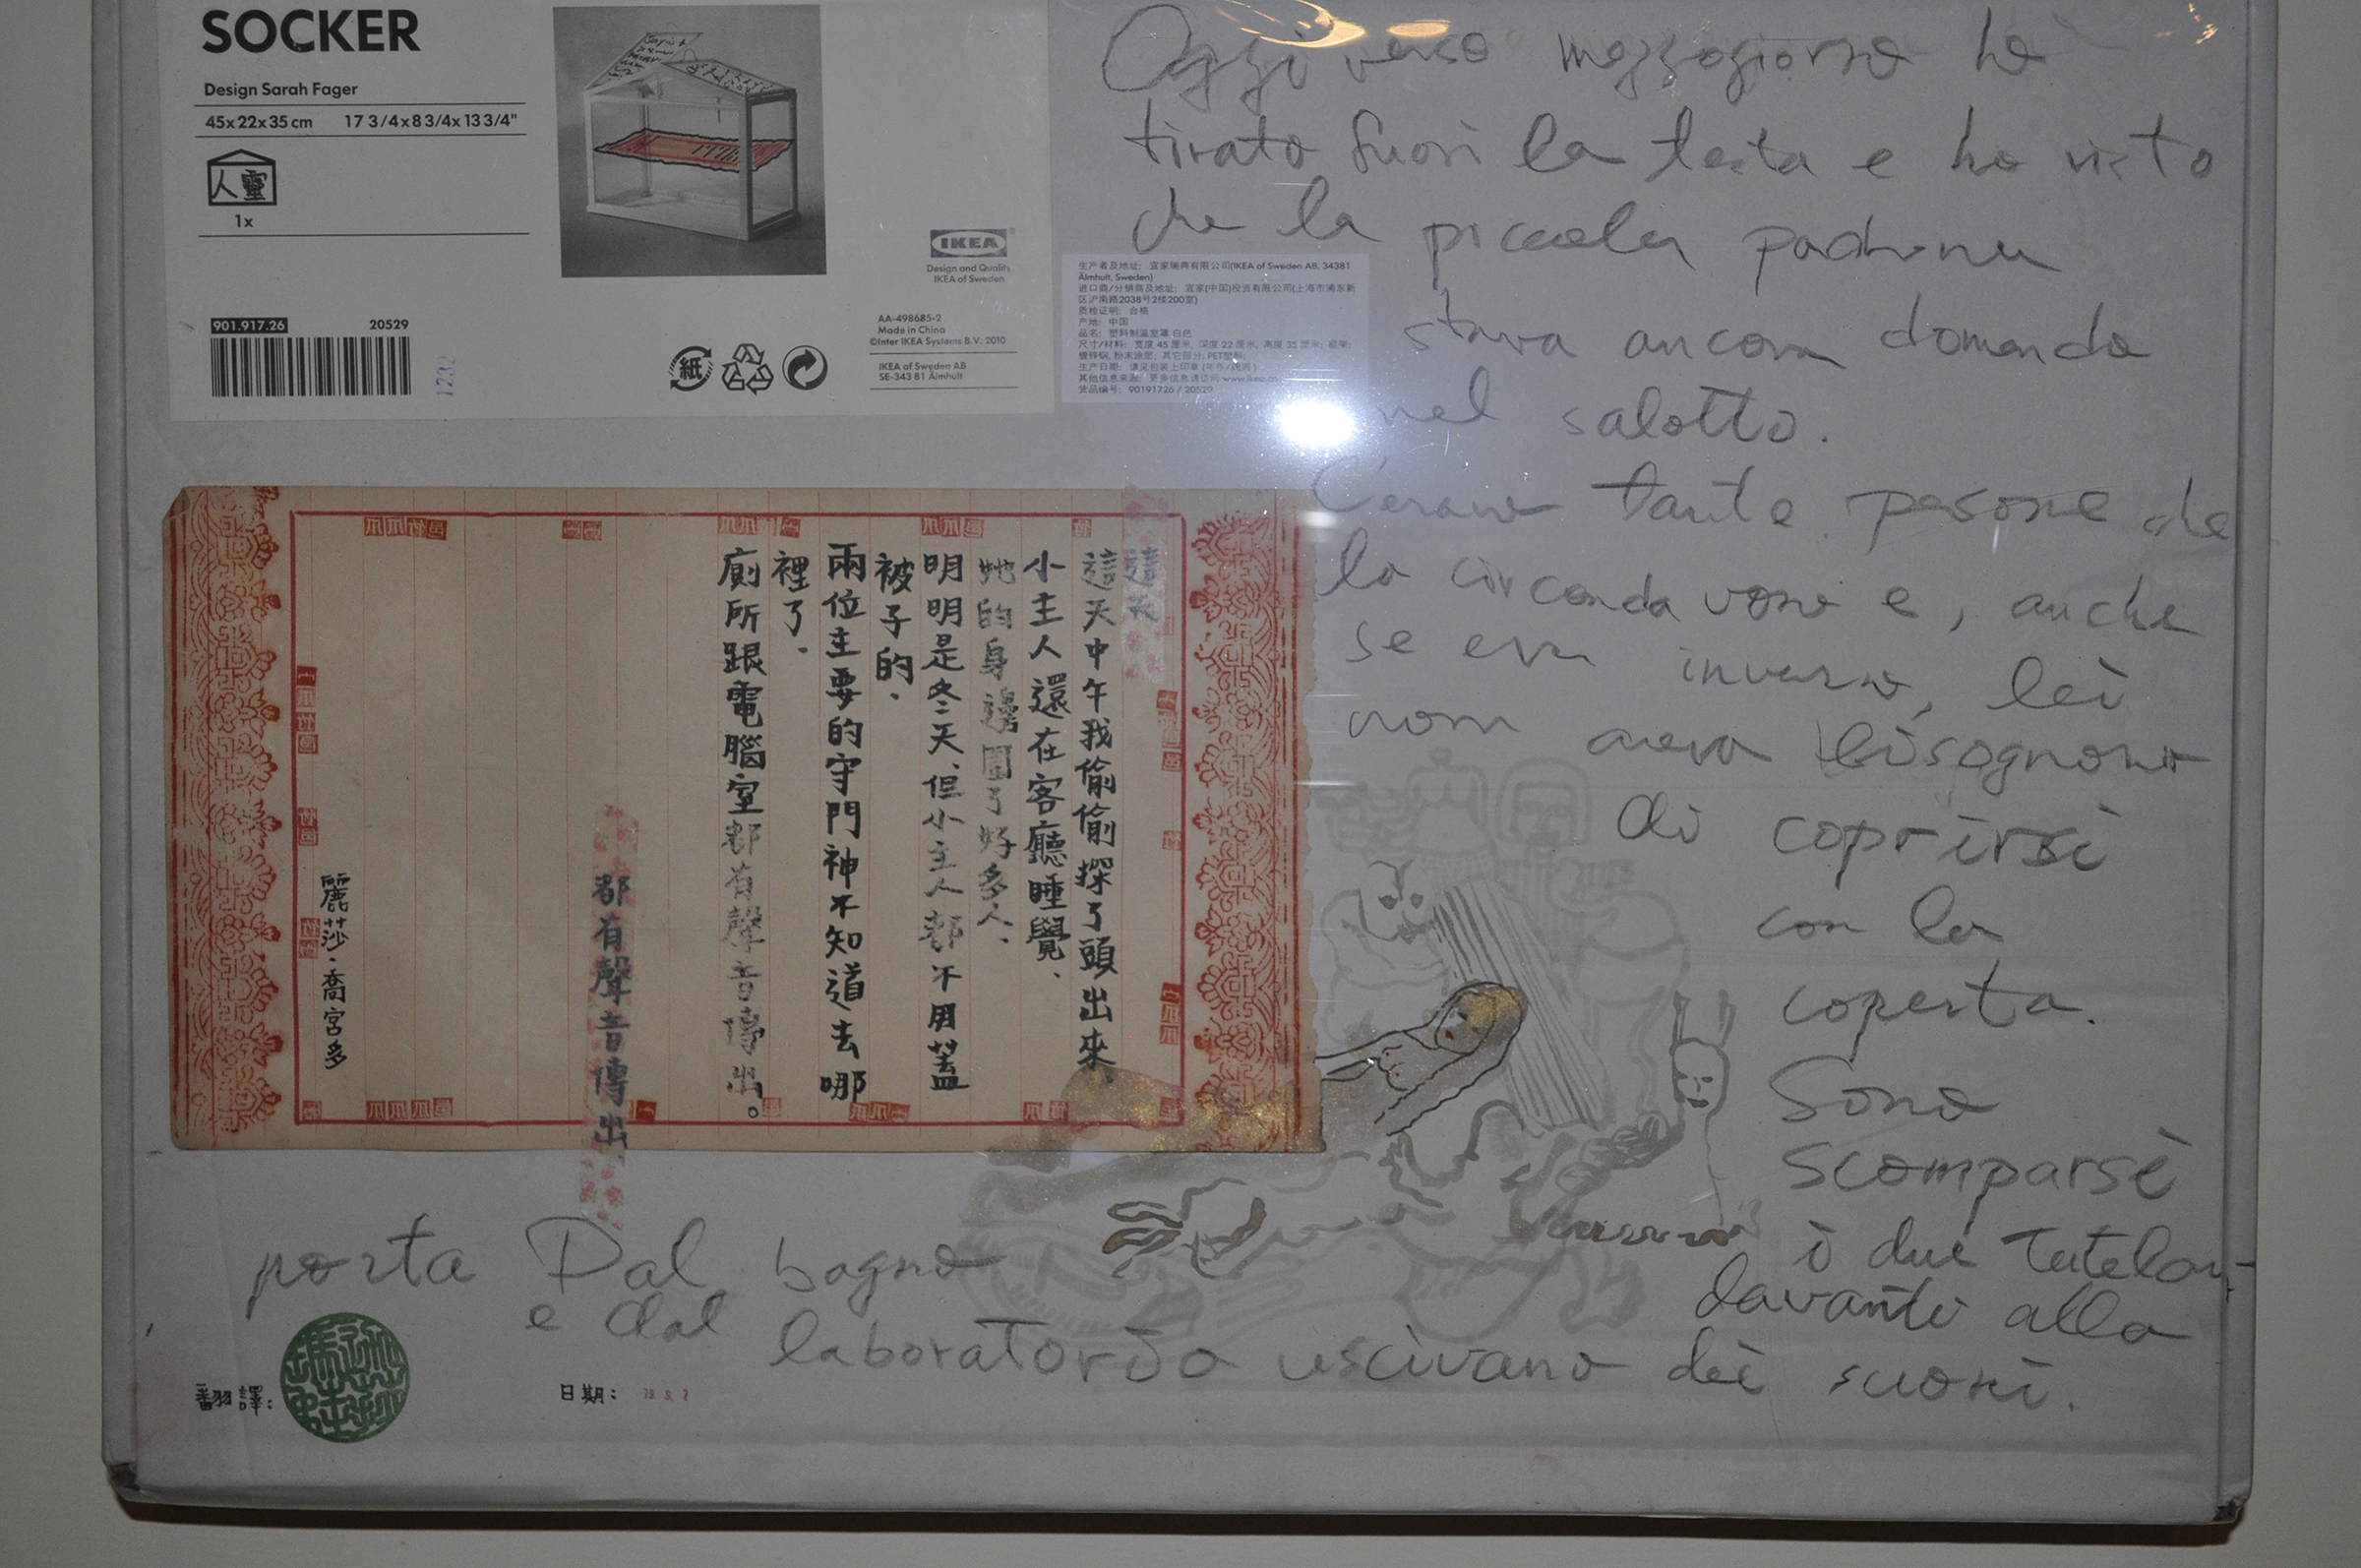 SOCKER
Design Sarah Fager
45x22x35 cm 17 3/4x8 3/4x13 3/4"
人靈
1x
IKEA
Design and Quality
IKEA of Sweden
901.917.26 20529
1232
紙
AA-498685-2
Made in China
©Inter IKEA Systems B.V. 2010
IKEA of Sweden AB
SE-343 81 Älmhult
生产者及地址: 宜家瑞典有限公司(IKEA of Sweden AB, 34381
Älmhult, Sweden)
进口商/分销商及地址: 宜家(中国)投资有限公司(上海市浦东新
区沪南路2038号2楼200室)
质检证明: 合格
产地: 中国
品名: 塑料制温室罩 白色
尺寸/材料: 宽度 45 厘米, 深度 22 厘米, 高度 35 厘米; 框架:
镀锌钢, 粉末涂层; 其它部分: PET塑料;
生产日期: 请见包装上印章
其他信息来源: 更多信息请访问 www.ikea.cn
货品编号: 90191726 / 20529
Oggi verso mezzogiorno ho
tirato fuori la testa e ho visto
che la piccola padrona
stava ancora dormendo
nel salotto.
C'erano tante persone che
la circondavano e, anche
se era inverno, lei
non aveva bisogno
di coprirsi
con la
coperta.
Sono
scomparsi
i due tutelari
davanti alla
porta Dal bagno
e dal laboratorio uscivano dei suoni.
這天
這天中午我偷偷探了頭出來、
小主人還在客廳睡覺、
她的身邊圍了好多人、
明明是冬天、但小主人都不用蓋
被子的、
兩位主要的守門神不知道去哪
裡了、
廁所跟電腦室都有聲音傳出。
都有聲音傳出
麗莎·喬宮多
翻譯:
日期: